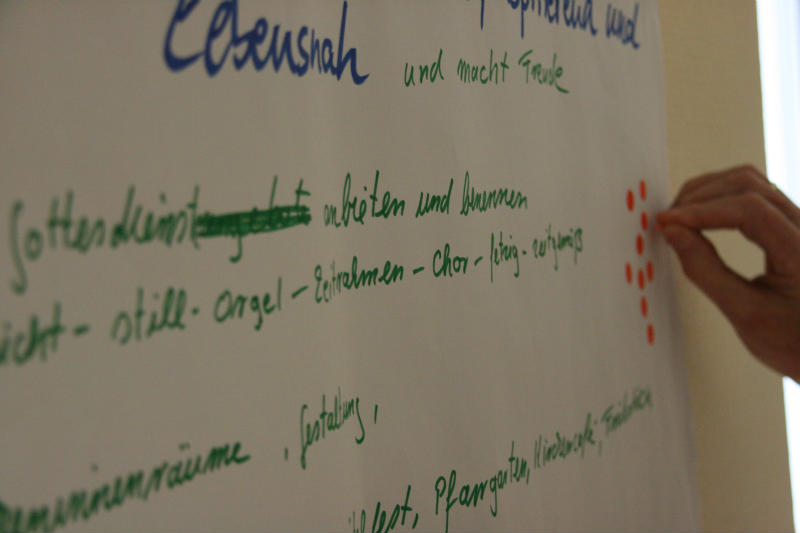 Lebensnah und
und macht Freude
Gottesdienst anbieten und benennen
still - Orgel - Zeitrahmen - Chor - fetzig - zeitgemäß
Gestaltung,
fest, Pfarrgarten, Kindercafé,